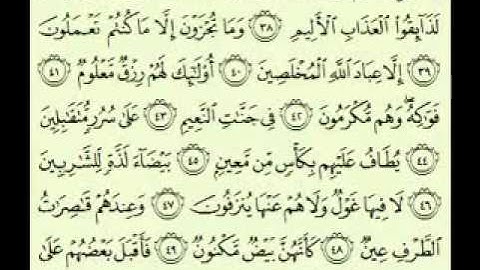 لَذَآئِقُوا۟ ٱلْعَذَابِ ٱلْأَلِيمِ ٣٨ وَمَا تُجْزَوْنَ إِلَّا مَا كُنتُمْ تَعْمَلُونَ
٣٩ إِلَّا عِبَادَ ٱللَّهِ ٱلْمُخْلَصِينَ ٤٠ أُو۟لَٰٓئِكَ لَهُمْ رِزْقٌ مَّعْلُومٌ ٤١
فَوَٰكِهُ وَهُم مُّكْرَمُونَ ٤٢ فِى جَنَّٰتِ ٱلنَّعِيمِ ٤٣ عَلَىٰ سُرُرٍ مُّتَقَٰبِلِينَ
٤٤ يُطَافُ عَلَيْهِم بِكَأْسٍ مِّن مَّعِينٍۭ ٤٥ بَيْضَآءَ لَذَّةٍ لِّلشَّٰرِبِينَ
٤٦ لَا فِيهَا غَوْلٌ وَلَا هُمْ عَنْهَا يُنزَفُونَ ٤٧ وَعِندَهُمْ قَٰصِرَٰتُ
ٱلطَّرْفِ عِينٌ ٤٨ كَأَنَّهُنَّ بَيْضٌ مَّكْنُونٌ ٤٩ فَأَقْبَلَ بَعْضُهُمْ عَلَىٰ